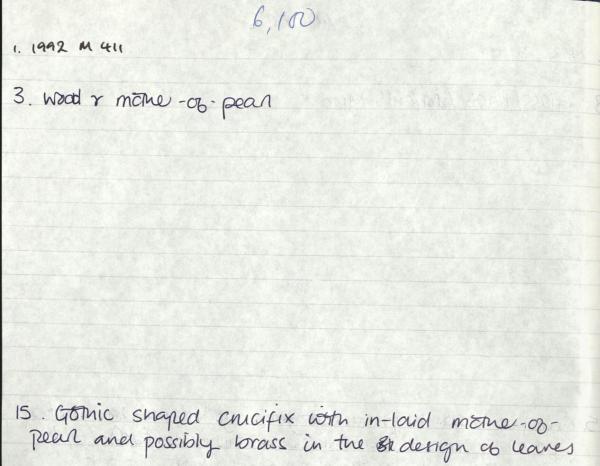 6,100
1. 1992 M 411
3. wood & mother-of-pearl
15. Gothic shaped crucifix with in-laid mother-of-
pearl and possibly brass in the design of leaves